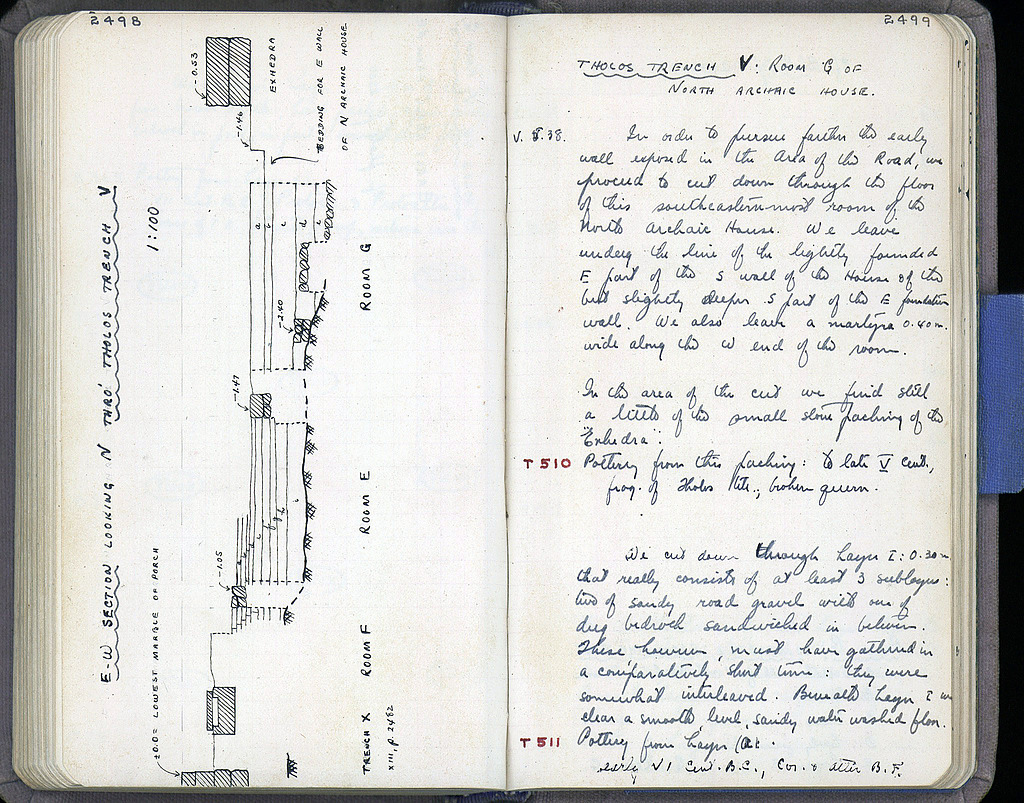 2498
E-W SECTION LOOKING N THRO' THOLOS TRENCH V
1:100
±0.0 = LOWEST MARBLE OF PORCH
-1.05
-1.47
-2.40
-1.46
-0.53
EXHEDRA
BEDDING FOR E WALL
OF N ARCHAIC HOUSE
TRENCH X
XIII, p. 2482
ROOM F
ROOM E
ROOM G
2499
THOLOS TRENCH V: ROOM G OF
NORTH ARCHAIC HOUSE.
V. 5.38.
In order to pursue farther the early
wall exposed in the Area of the Road, we
proceed to cut down through the floor
of this southeasternmost room of the
North Archaic House. We leave
underg the line of the lightly founded
E part of the S wall of the House & of the
but slightly deeper S part of the E foundation
wall. We also leave a martyra 0.40 m.
wide along the W end of the room.
In the area of the cut we find still
a little of the small stone packing of the
"Exhedra".
T 510
Pottery from this packing: to late V cent.,
frag. of Tholos tile, broken quern.
We cut down through Layer I: 0.30 m
that really consists of at least 3 sublayers:
two of sandy road gravel with one of
dug bedrock sandwiched in between.
These however, must have gathered in
a comparatively short time: they were
somewhat interleaved. Beneath Layer I we
clear a smooth level, sandy water washed floor.
T 511
Pottery from Layer
early VI Cent. B.C., Cor. & Attic B.F.